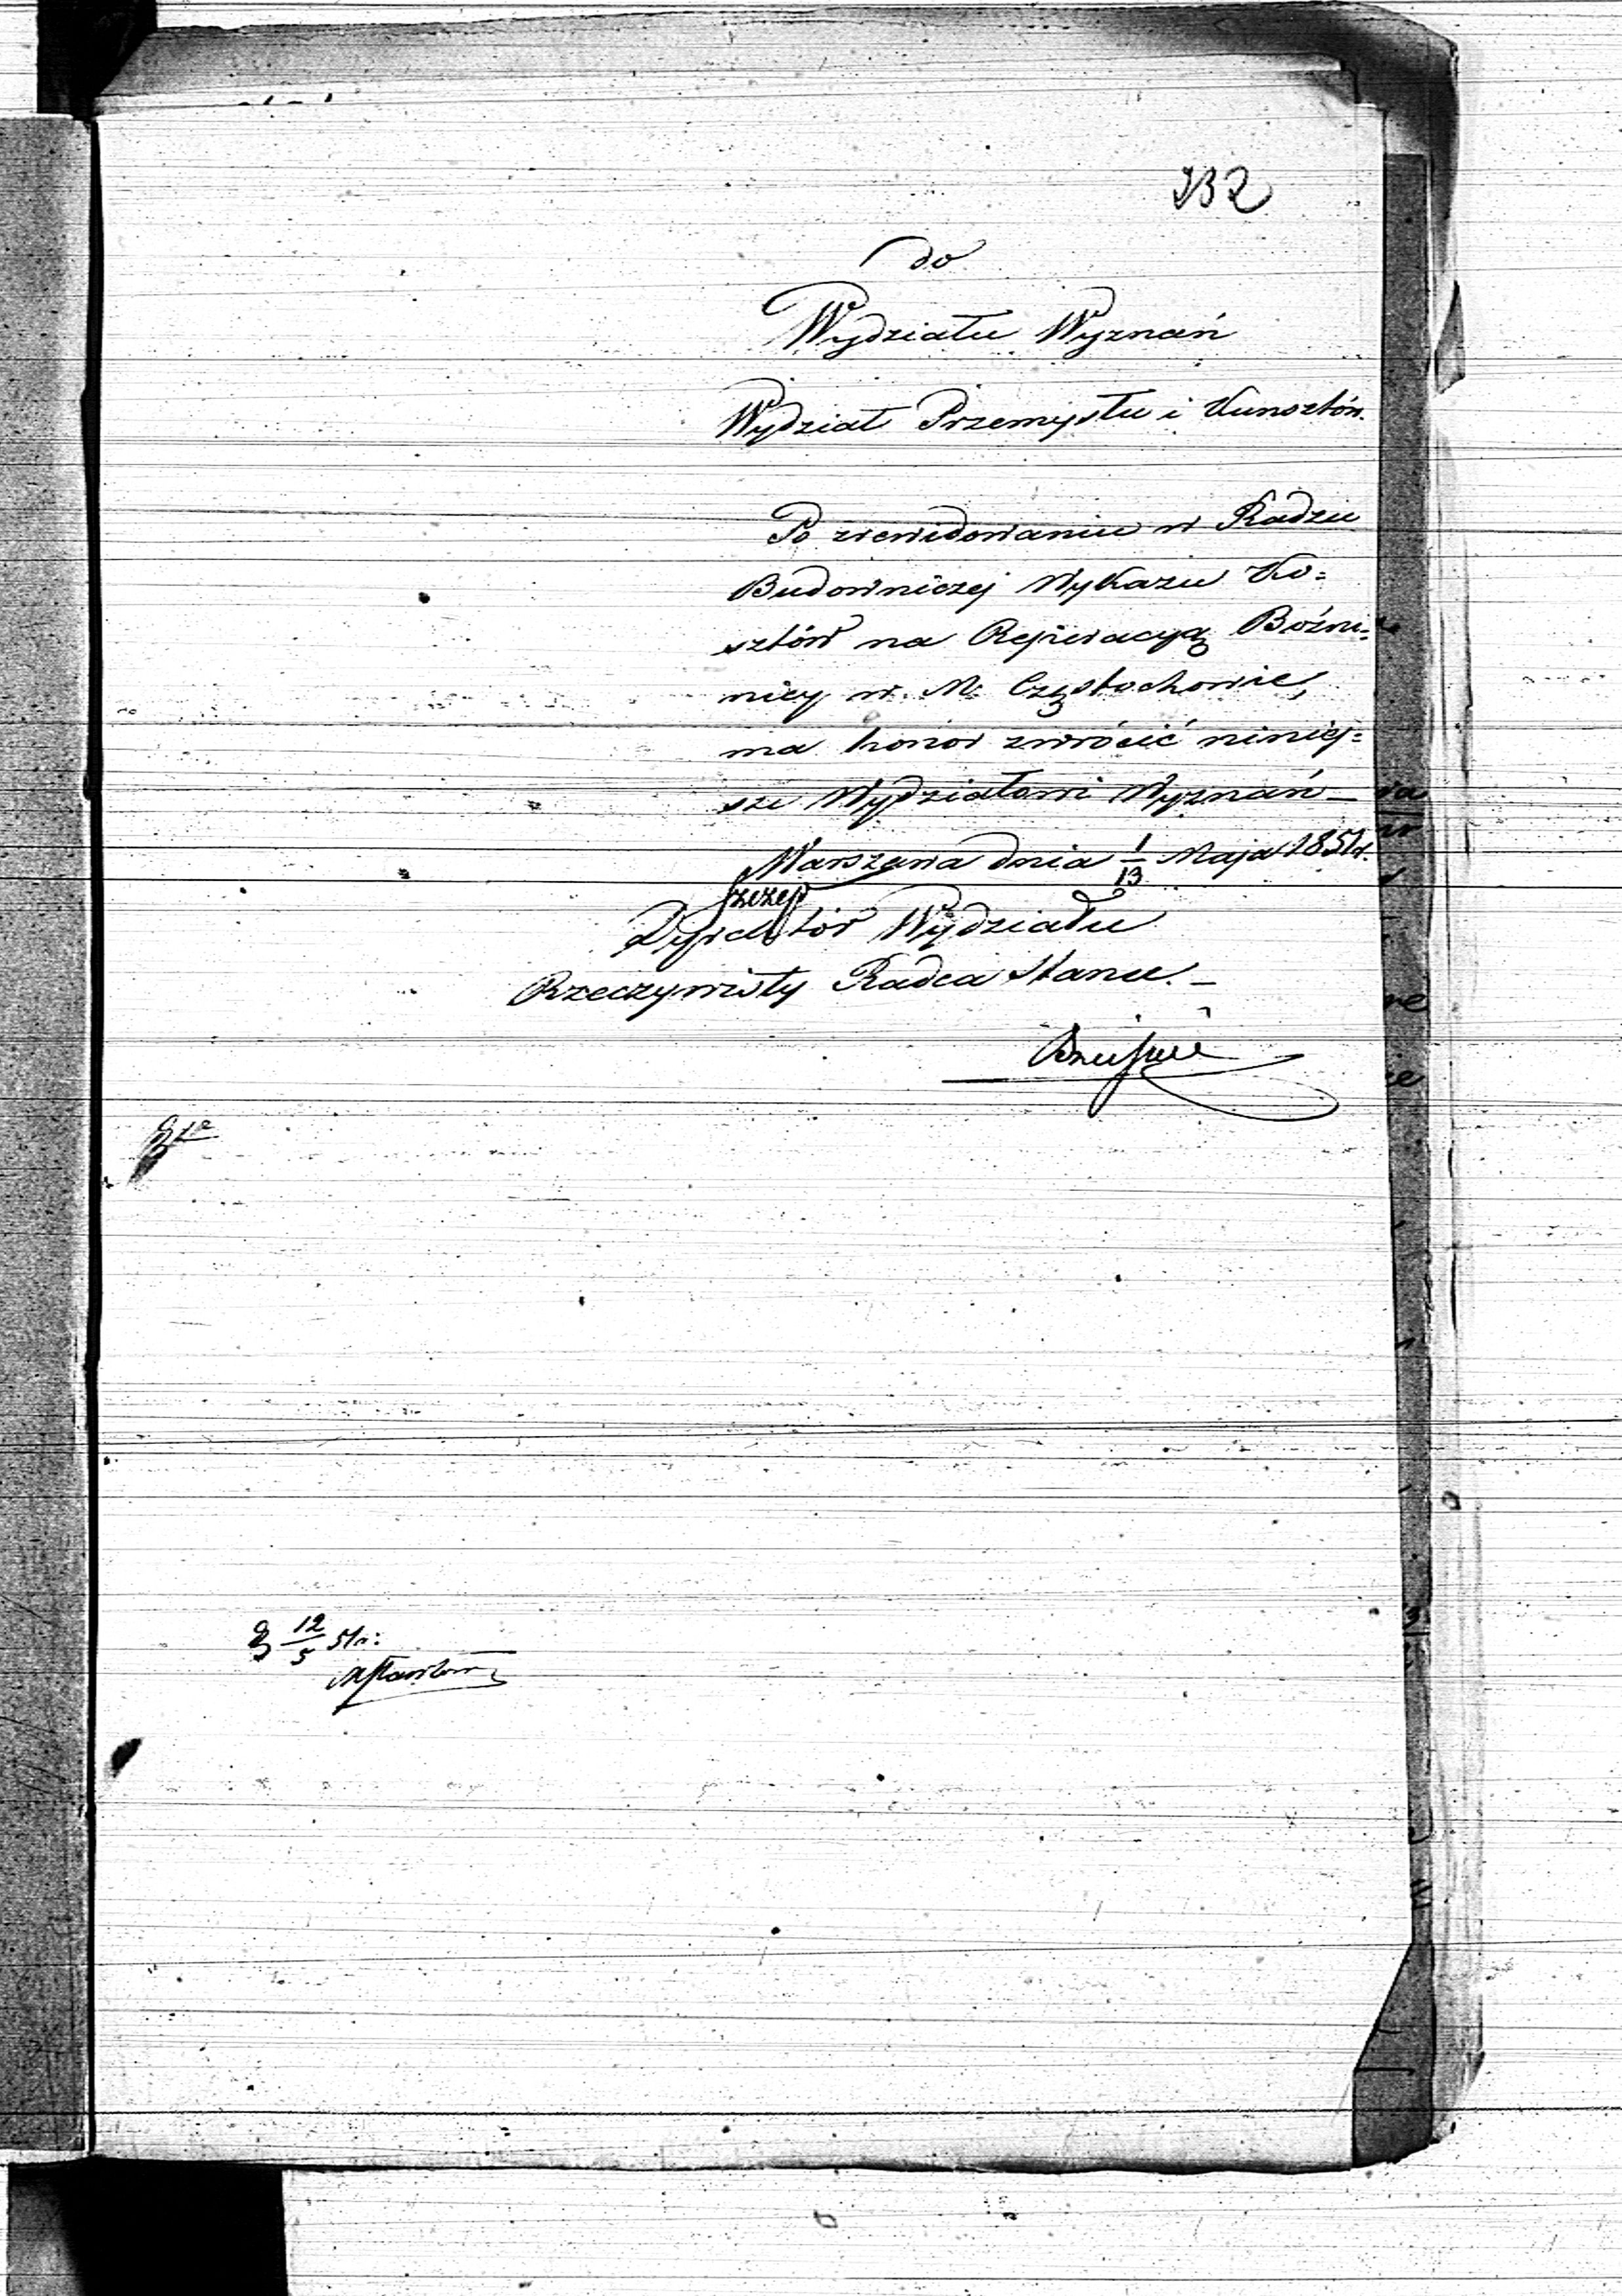 232
do
Wydziału Wyznań
Wydział Przemysłu i Kunsztów.
Po zrewidowaniu w Radzie
Budowniczej Wykazu Ko=
sztów na Reperacyą Boźni=
nicy w M. Częstochowie,
ma honor zwrócić niniej=
sze Wydziałowi Wyznań —
Warszawa dnia 1/13 Maja 1851 r.
Dyrektór Wydziału
Rzeczywisty Radca Stanu. —
12/5 51 r: